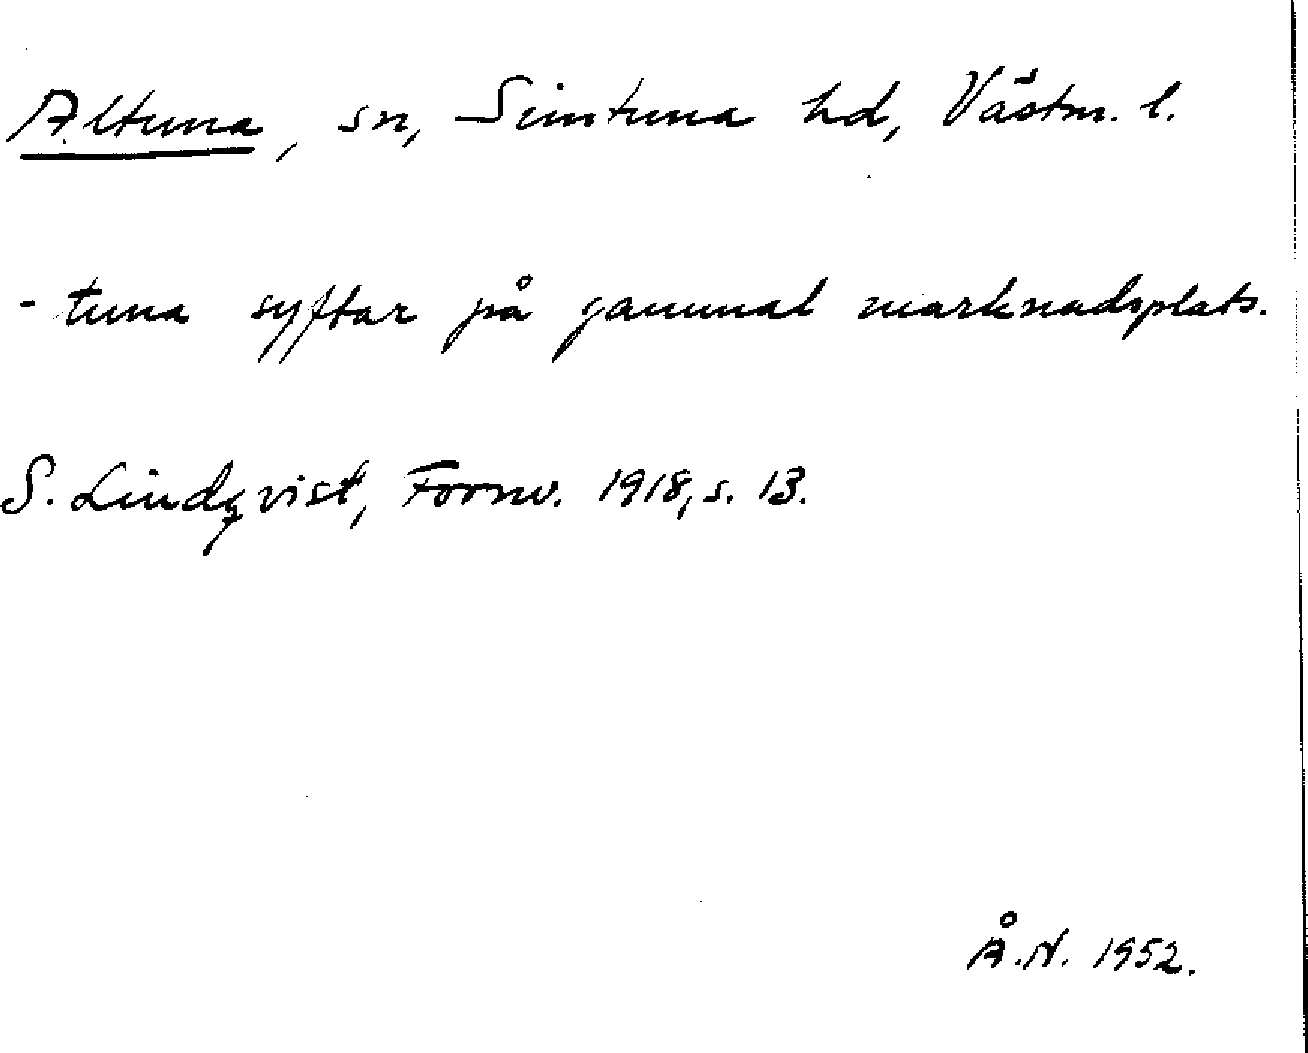 Altuna, sn, Simtuna hd, Västm. l.
-tuna syftar på gammal marknadsplats.
S. Lindqvist, Fornv. 1918, s. 13.
Å.N. 1952.